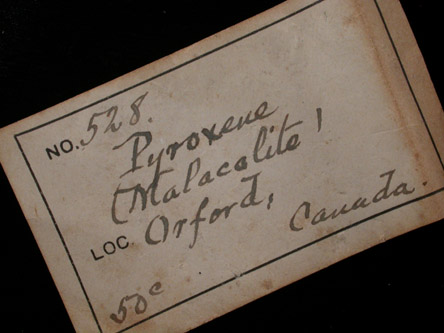 NO. 528.
Pyroxene
(Malacolite)
LOC Orford,
Canada.
50c